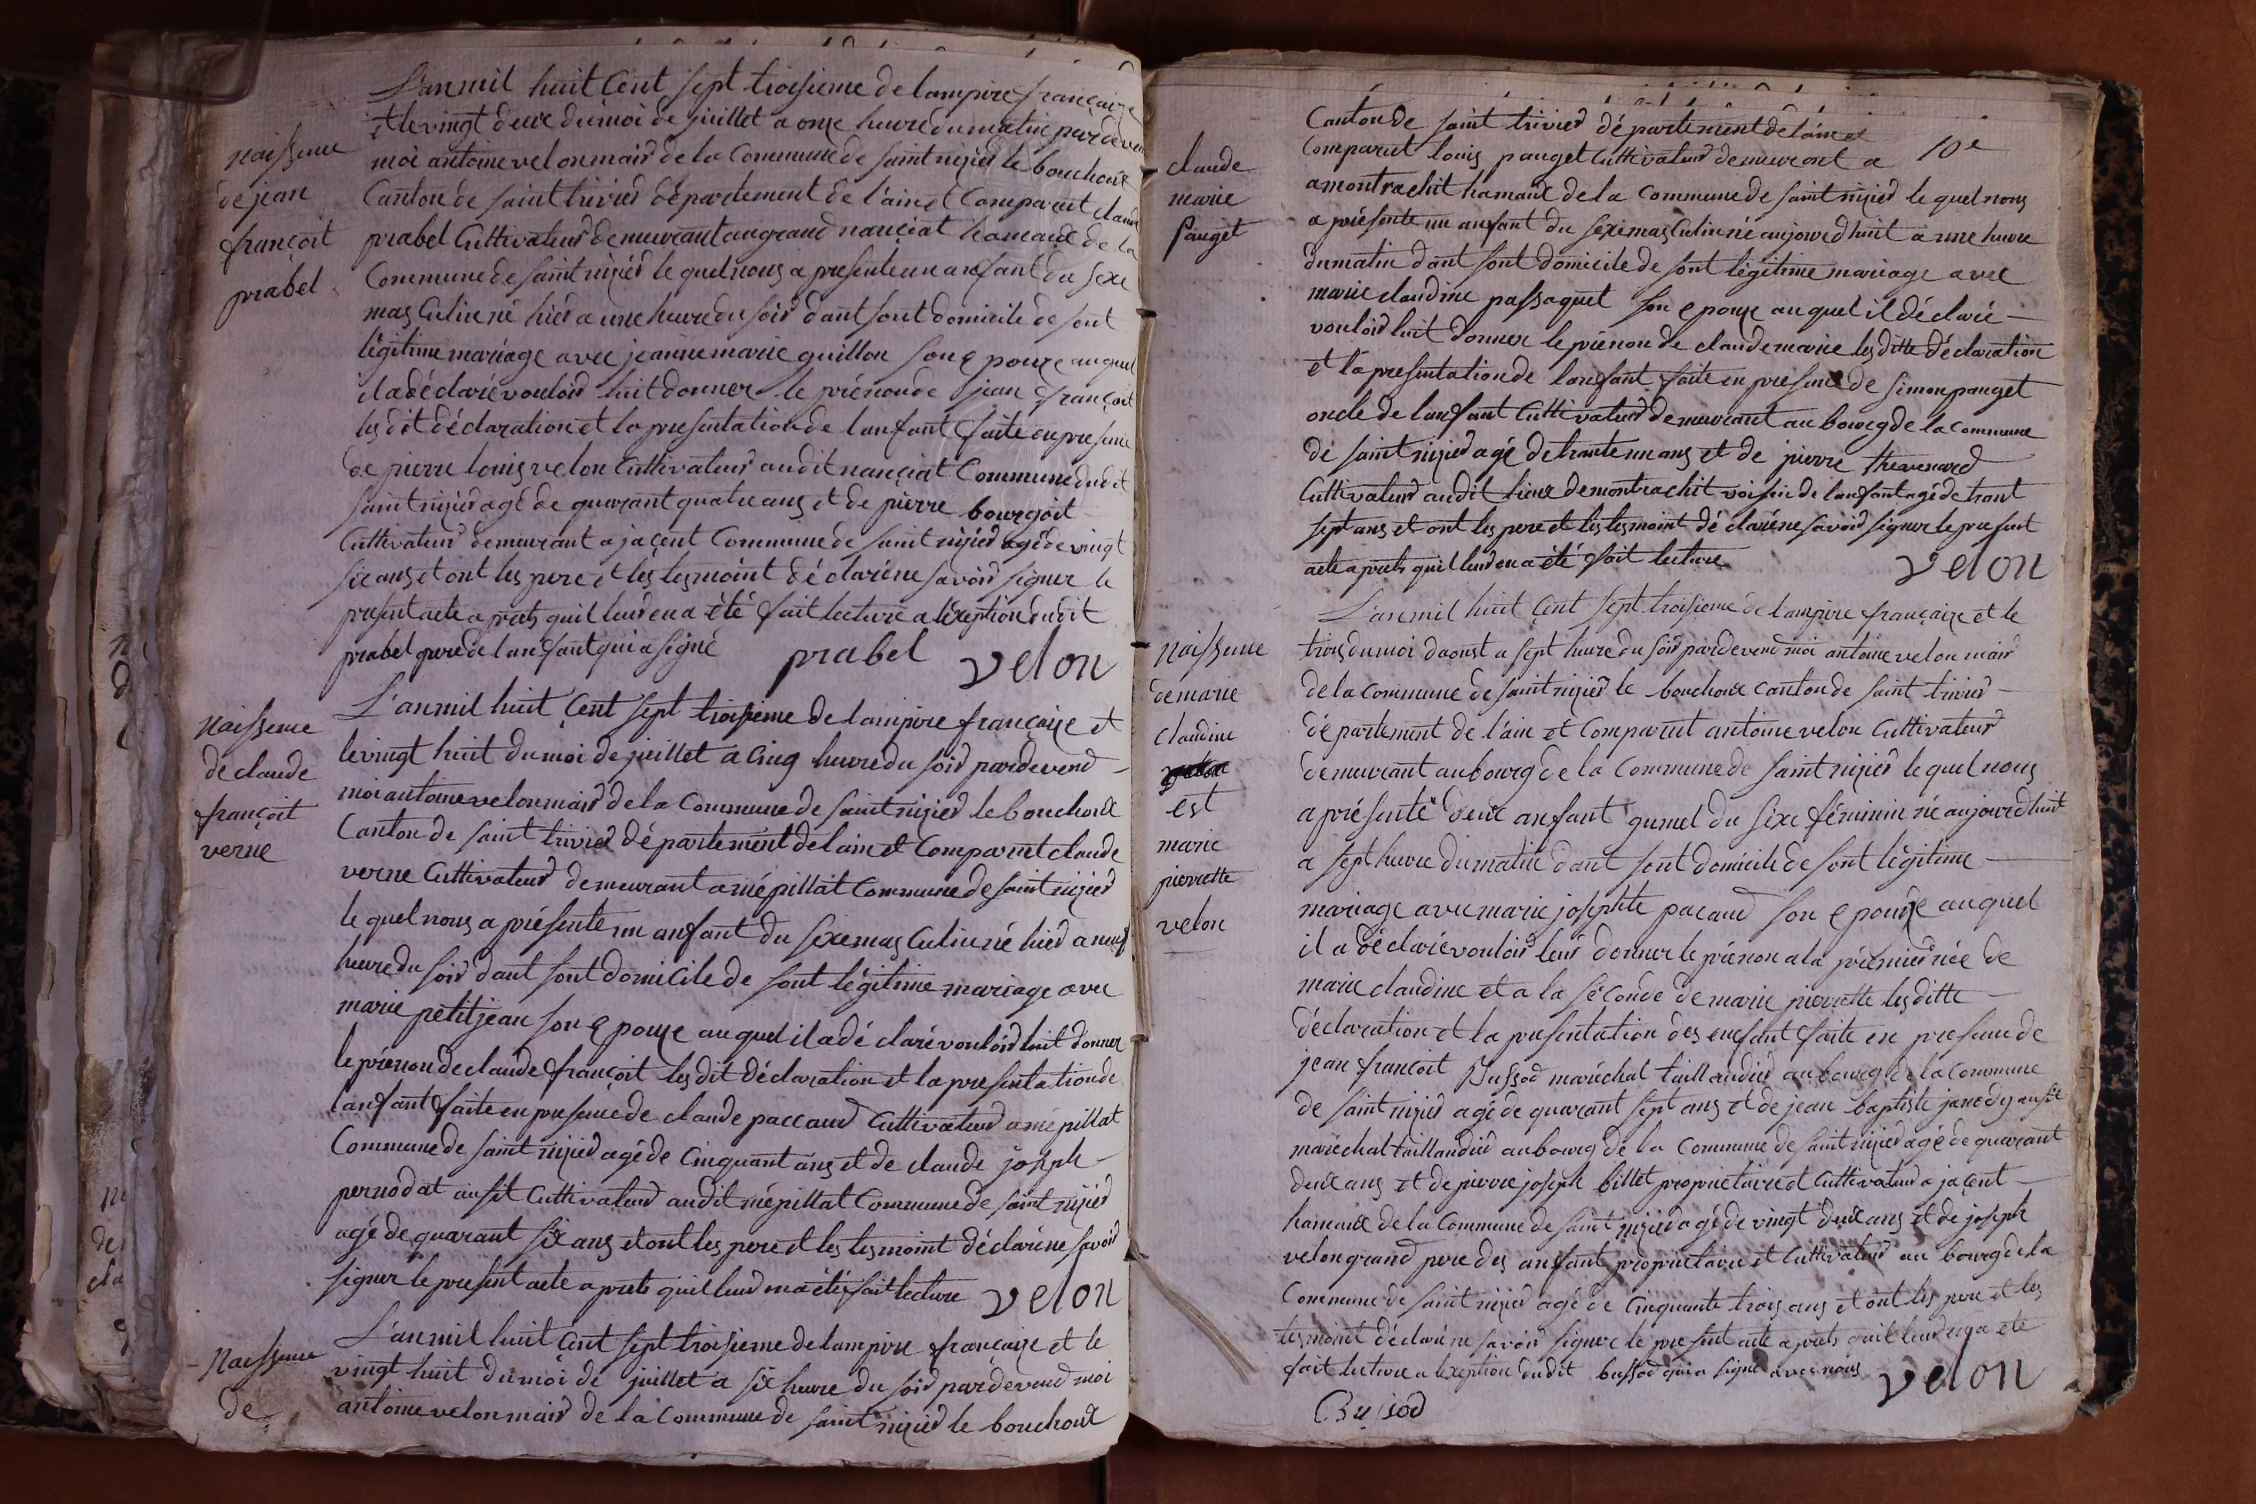 naissence
de jean
françoit
prabel
L'an mil huit çent sept troisieme de lampire françaize
et le vingt deux du moi de juillet a onze heure du matin par deven
moi antoine velon maird de la Commune de saint nizied le bouchoux
Canton de saint trivied département de l'ain et Comparut claude
prabel Cultivateurd demeurant au grand nançiat hamaux de la
Commune de saint nizied le quel nous a presente un anfant du sexe
masculin né hied a une heure du soird dant sont domicile de sont
légitime mariage avec jeanne marie guillon son epouze auquel
il a déclaré vouloird luit donner le prénon de jean françoit
les dit déclaration et la presentation de l'anfant faite en presence
de pierre louis velon Cultivateurd audit nançiat Commune dudit
saint nizied agé de quarant quatre ans et de pierre bourgoit
Cultivateurd demeurant a jaçent Commune de saint nizied agé de vingt
six ans et ont les pere et les tesmoint déclaré ne savoird signer le
present acte aprets quil leurd en a été fait lecture a léxeption dudit
prabel pere de l'anfant qui a signé prabel velon
naissence
de claude
françoit
verne
L'an mil huit çent sept troisieme de lampire françaize et
le vingt huit du moi de juillet a cinq heure du soird par devend
moi antoine velon maird de la Commune de saint nizied le bouchoux
Canton de saint trivied département de lain et Comparut claude
verne Cultivateurd demeurant a mépillat Commune de saint nizied
le quel nous a présente un anfant du sexe masculin né hied a neuf
heure du soird dant sont domicile de sont légitime mariage avec
marie petitjean son epouze auquel il a déclaré vouloird luit donner
le prénon de claude françoit les dit déclaration et la presentation de
lanfant faite en presence de claude paccaud Cultivateurd a mépillat
Commune de saint nizied agé de Cinquant ans et de claude joseph
pernodat ausit Cultivateurd audit mépillat Commune de saint nizied
agé de quarant six ans et ont les pere et les tesmoint déclaré ne savoird
signer le present acte aprets quil leurd en a été fait lecture velon
Naissence
de
L'an mil huit çent sept troisieme de lampire françaize et le
vingt huit du moi de juillet a six heure du soird par devend moi
antoine velon maird de la Commune de saint nizied le bouchoux
10e
claude
marie
pauget
Canton de saint trivied département de lain et
Comparut louis pauget Cultivateurd demeurant a
a montrachit hamaux de la commune de saint nizied le quel nous
a présente un anfant du sexe masculin né aujourd huit a une heure
du matin dant sont domicile de sont légitime mariage avec
marie claudine passaquet son epouze auquel il déclaré
vouloird luit donner le prénon de claude marie les ditte déclaration
et la presentation de lanfant faite en presence de simon pauget
oncle de lanfant Cultivateurd demeurant au bourg de la commune
de saint nizied agé de trante un ans et de pierre thevenard
Cultivateurd audit lieux de montrachit voisin de lanfant agé de trant
sept ans et ont les pere et les tesmoint déclaré ne savoird signer le present
acte aprets quil leurd en a été fait lecture velon
naissence
de marie
claudine
est
marie
pierrette
velon
L'an mil huit çent sept troisieme de lampire françaize et le
trois du moi daoust a sept heure du soird par devend moi antoine velon maird
de la commune de saint nizied le bouchoux canton de saint trivied
département de l'ain et Comparut antoine velon Cultivateurd
demeurant au bourg de la Commune de saint nizied le quel nous
a présenté deux anfant gumel du sexe féminin né aujourd huit
a sept heure du matin dant sont domicile de sont légitime
mariage avec marie josephte pacaud son epouze auquel
il a déclaré vouloird leurd donner le prénon a la prémierd née de
marie claudine et a la séconde de marie pierrette les ditte
déclaration et la presentation des enfant faite en presence de
jean françoit Bussod maréchal taillandied au bourg de la commune
de saint nizied agé de quarant sept ans et de jean baptiste ausit
maréchal taillandied au bourg de la Commune de saint nizied agé de quarant
deux ans et de pierre joseph billet propriétaire et Cultivateurd a jaçent
hameaux de la Commune de saint nizied agé de vingt deux ans et de joseph
velon grand pere des anfant propriétaire et Cultivateurd au bourg de la
Commune de saint nizied agé de Cinquante trois ans et ont les pere et les
tesmoint déclaré ne savoird signer le present acte aprets quil leurd en a été
fait lecture a léxeption dudit bussod qui a signé avec nous velon
Bussod